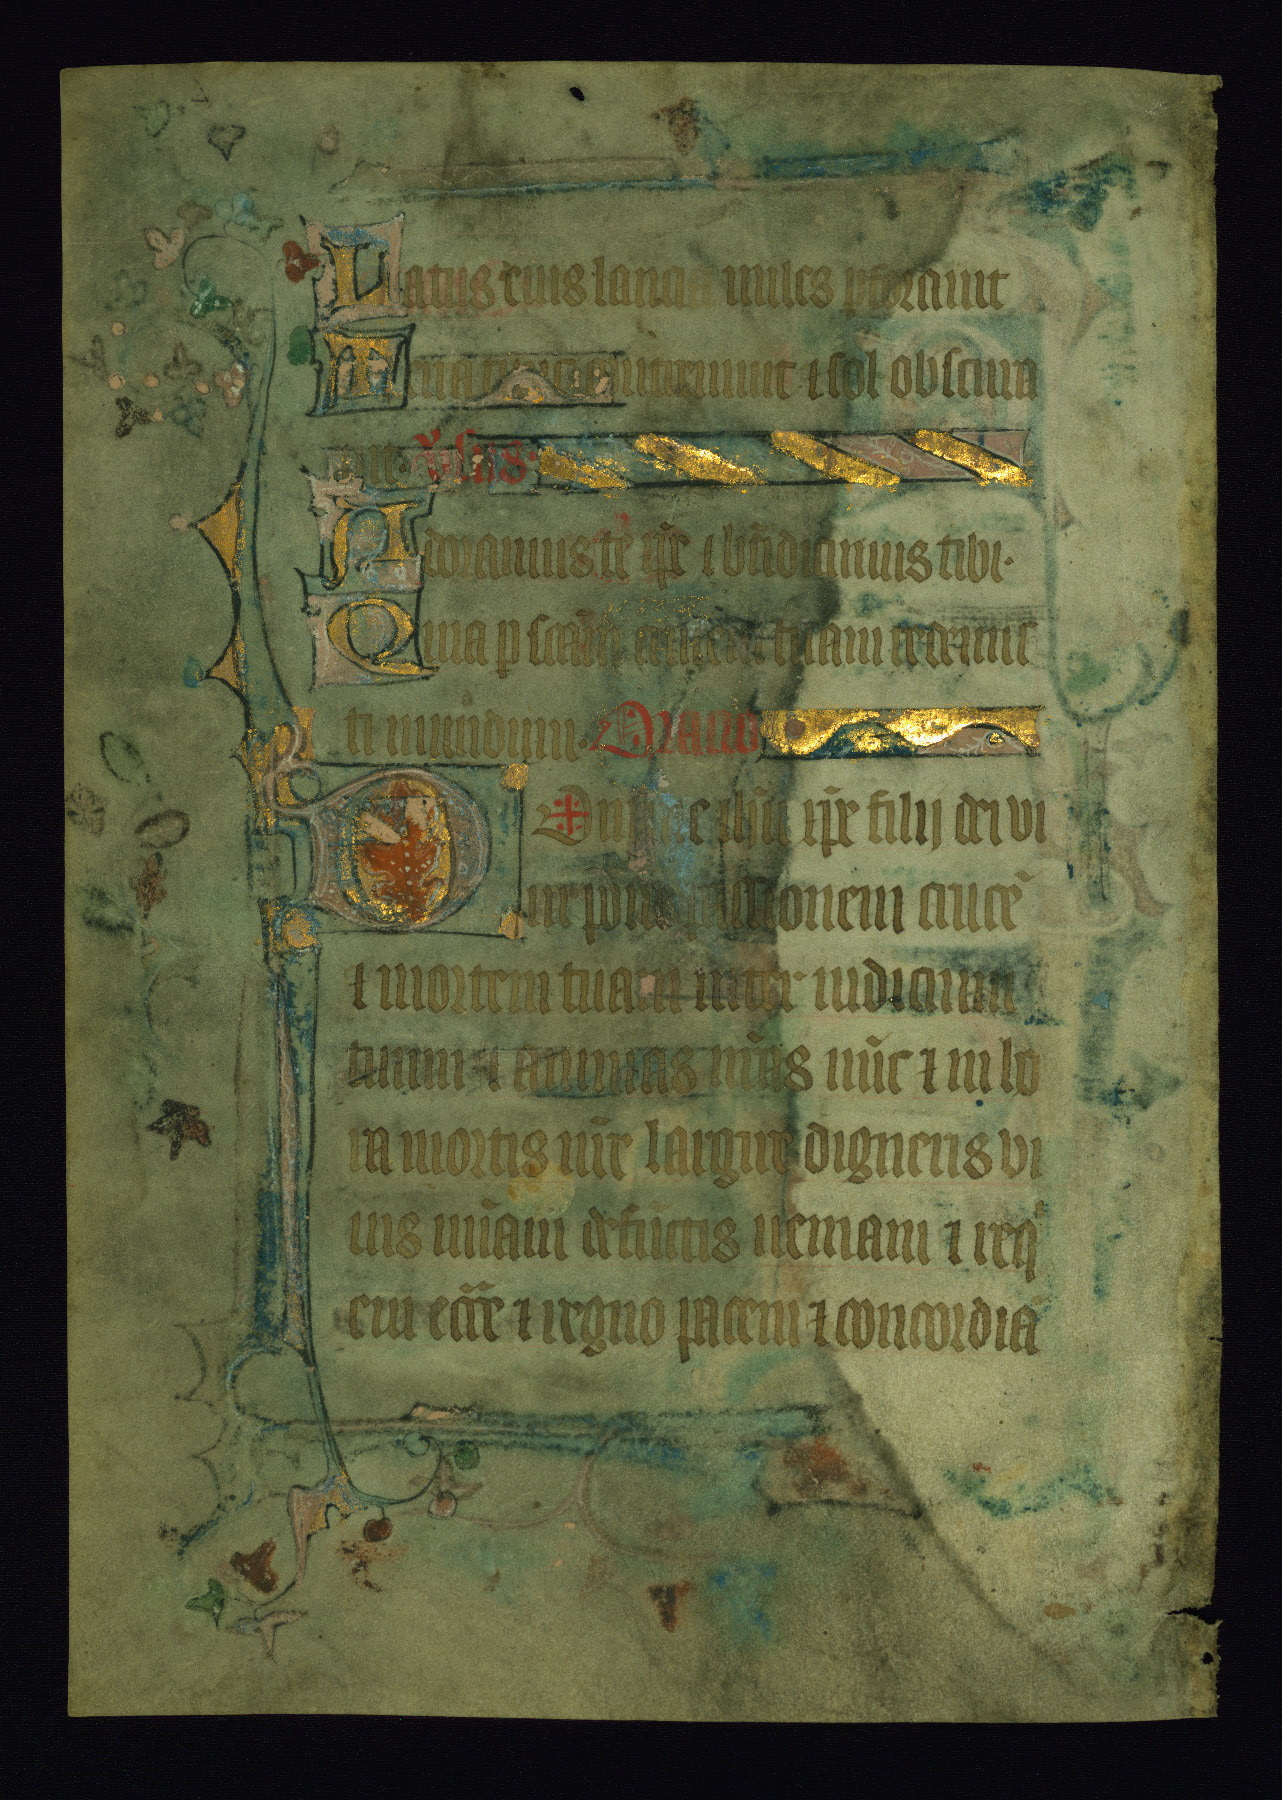 Latus eius lancea miles pforauit
Terra tunc contremuit ⁊ sol obscura
uit. V̛sus.
Adoramus te xp̄e ⁊ bn̄dicimus tibi·
Quia p scām crucem tuam redemis
ti mundum· Oratio
Domine ihū xp̄e filij dei vi
ui pone passionem crucē
⁊ mortem tuam inter iudicium
tuum ⁊ animas nr̄as nūc ⁊ in ho
ra mortis nr̄e largire digneris vi
uis mīam defūctis ueniam ⁊ req̄
em eccl̄e ⁊ regno pacem ⁊ concordiā